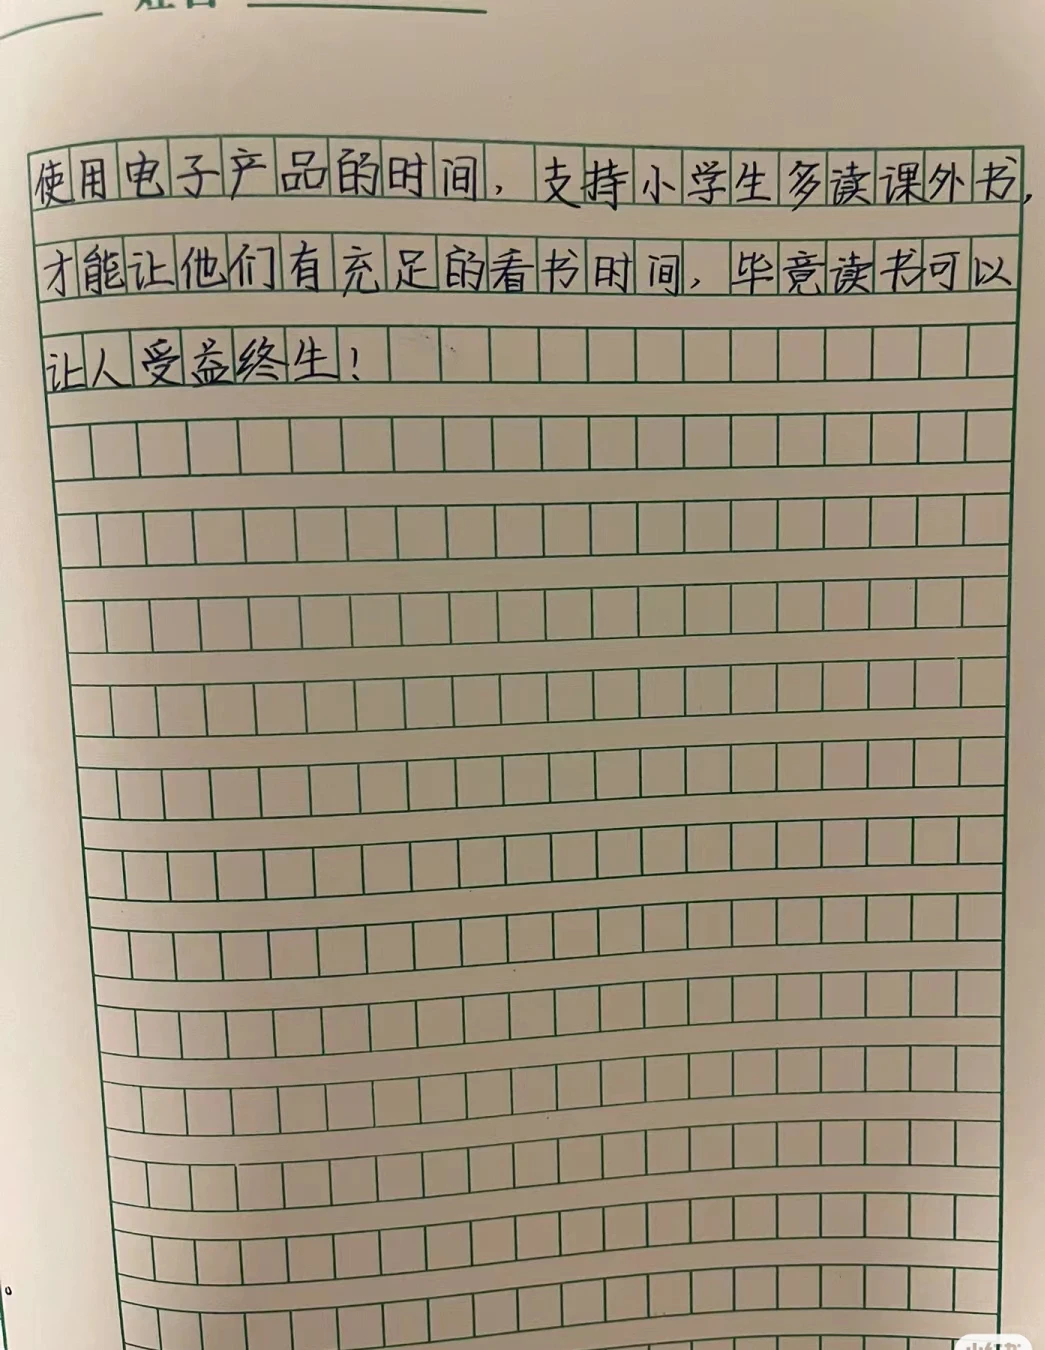 使用电子产品的时间，支持小学生多读课外书，
才能让他们有充足的看书时间，毕竟读书可以
让人受益终生！